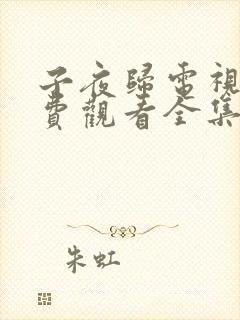 子夜歸電視
費觀看全集
朱虹